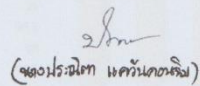 (นางประณิตา แควันคอนฉิม)